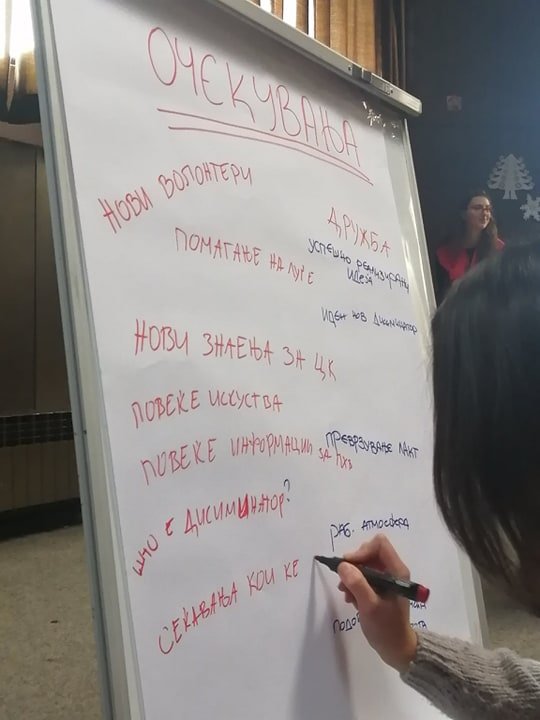 ОЧЕКУВАЊА
НОВИ ВОЛОНТЕРИ
ДРУЖБА
ПОМАГАЊЕ НА ЛУЃЕ
УСПЕШНО РЕАЛИЗИРАНИ
ИДЕЈА
ИДЕН НОВ ДИСИМИНАТОР
НОВИ ЗНАЕЊА ЗА ЦК
ПОВЕЌЕ ИСКУСТВА
ПОВЕЌЕ ИНФОРМАЦИИ
ЗА ПХВ
ПРЕВРЗУВАЊЕ ЛАКТ
ШТО Е ДИСИМИНАТОР?
РАБ. АТМОСФЕРА
СЕЌАВАЊА КОИ ЌЕ